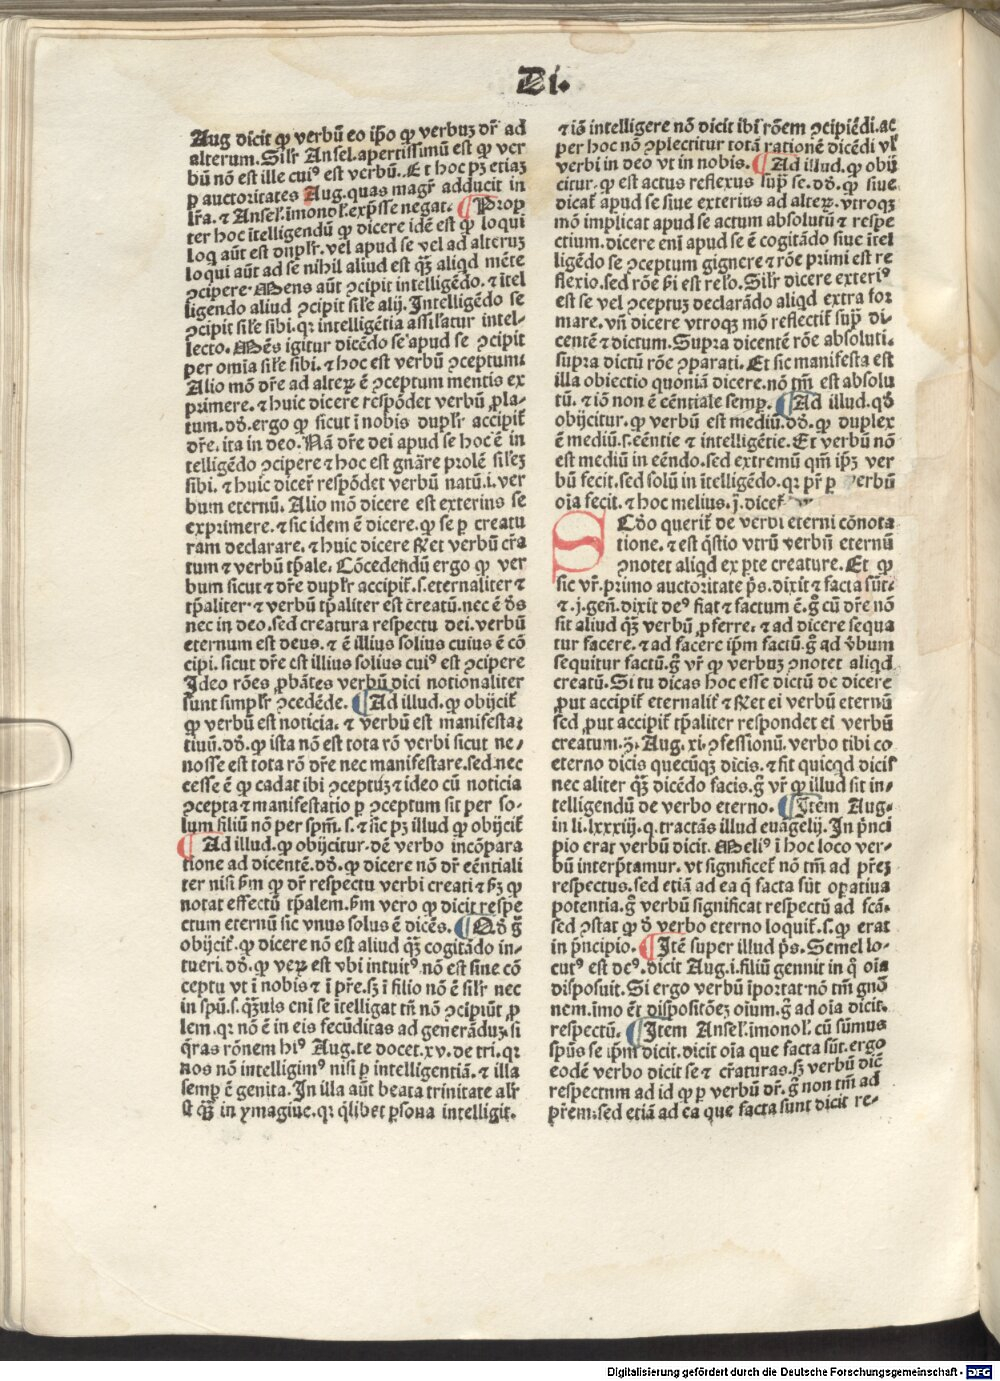 Di.
Aug dicit ꝙ verbū eo ip̄o ꝙ verbuꝫ dr̄ ad
alterum. Silr̄ Ansel. apertissimū est ꝙ ver
bū nō est ille cuiꝰ est verbū.. Et hoc pꝫ etiaꝫ
ꝑ auctoritates Aug. quas magr̄ adducit in
lr̄a. ⁊ Anseł. imonoł. exp̄sse negat. ¶ Prop
ter hoc ītelligendū ꝙ dicere idē est ꝙ loqui
loq̄ aūt est duplr̄. vel apud se vel ad alteruꝫ
loqui aūt ad se nihil aliud est qꝫ̄ aliqd mēte
ꝯcipere. Mens aūt ꝯcipit intelligēdo. ⁊ ītel
ligendo aliud ꝯcipit sił̄e alij. Intelligēdo se
ꝯcipit sił̄e sibi. qꝛ intelligētia assil̄atur intel-
lecto. Mēs igitur dicēdo se apud se ꝯcipit
per omia sił̄e sibi. ⁊ hoc est verbū ꝯceptum:
Alio mō dr̄e ad alteꝝ ē ꝯceptum mentis ex
primere. ⁊ huic dicere respōdet verbū ꝓla-
tum. dō. ergo ꝙ sicut ī nobis duplr̄ accipit̄
dr̄e. ita in deo. Nā dr̄e dei apud se hoc ē in
telligēdo ꝯcipere ⁊ hoc est gnāre prolē sił̄eꝫ
sibi. ⁊ huic dicer̄ respōdet verbū natū. i. ver
bum eternū. Alio mō dicere est exterius se
exprimere. ⁊ sic idem ē dicere. ꝙ se ꝑ creatu
ram declarare. ⁊ huic dicere Rn̄et verbū cr̄a
tum ⁊ verbū tp̄ale. Cōcedendū ergo ꝙ ver
bum sicut ⁊ dr̄e duplr̄ accipit̄. s. eternaliter ⁊
tp̄aliter. ⁊ verbū tp̄aliter est creatū. nec ē ds̄
nec in deo. sed creatura respectu dei. verbū
eternum est deus. ⁊ ē illius solius cuius ē cō
cipi. sicut dr̄e est illius solius cuiꝰ est ꝯcipere
Ideo rōes ꝓbātes verbū dici notionaliter
sunt simplr̄ ꝯcedēde. ¶ Ad illud. ꝙ obijcit̄
ꝙ verbū est noticia. ⁊ verbū est manifesta-
tiuū. dō. ꝙ ista nō est tota rō verbi sicut ne-
nosse est tota rō dr̄e nec manifestare. sed nec
cesse ē ꝙ cadat ibi ꝯceptuꝫ ⁊ ideo cū noticia
ꝯcepta ⁊ manifestatio ꝑ ꝯceptum sit per so-
lum filiū nō per spm̄. s. ⁊ sic pꝫ illud ꝙ obijcit̄
¶ Ad illud. ꝙ obijcitur. dē verbo incōpara
tione ad dicentē. dō. ꝙ dicere nō dr̄ eēntiali
ter nisi ẜm ꝙ dr̄ respectu verbi creati ⁊ ẜꝫ ꝙ
notat effectū tp̄alem. ẜm vero ꝙ dicit respe
ctum eternū sic vnus solus ē dicēs. ¶ Qd̄ g̊
obijcit̄. ꝙ dicere nō est aliud qꝫ̄ cogitādo in-
tueri. dō. ꝙ veꝝ est vbi intuitꝰ nō est sine cō
ceptu vt ī nobis ⁊ ī pr̄e. sꝫ ī filio nō ē silr̄ nec
in spū. s. qꝫ̄uis eni se ītelligat tn̄ nō ꝯcipiūt ꝓ
lem. qꝛ nō ē in eis fecūditas ad generāduꝫ. si
q̄ras rōnem hiꝰ Aug. te docet. xv. de tri. qꝛ
nos nō intelligimꝰ nisi ꝑ intelligentiā. ⁊ illa
semꝑ ē genita. In illa aūt beata trinitate alr̄
est qꝫ̄ in ymagine. qꝛ q̄libet ꝑsona intelligit.
⁊ iō intelligere nō dicit ibi rōem ꝯcipiēdi. ac
per hoc nō ꝯplectitur totā rationē dicēdi vł
verbi in deo vt in nobis. ¶ Ad illud. ꝙ obij
citur. ꝙ est actus reflexus sup̄ se. dō. ꝙ siue
dicat̄ apud se siue exterius ad alteꝝ. vtroqꝫ
mō implicat apud se actum absolutū ⁊ respe
ctium. dicere eni apud se ē cogitādo siue ītel
ligēdo se ꝯceptum gignere ⁊ rōe primi est re
flexio. sed rōe ẜi est relo. Silr̄ dicere exteriꝰ
est se vel ꝯceptuꝫ declarādo aliqd extra for
mare. vn̄ dicere vtroqꝫ mō reflectit̄ sup̄ di-
centē ⁊ dictum. Supra dicentē rōe absoluti.
supra dictū rōe ꝯparati. Et sic manifesta est
illa obiectio quoniā dicere. nō tm̄ est absolu
tū. ⁊ iō non ē eēntiale semꝑ. ¶ Ad illud. qd̄
obijcitur. ꝙ verbū est mediū. dō. ꝙ duplex
ē mediū. s. eēntie ⁊ intelligētie. Et verbū nō
est mediū in eēndo. sed extremū qm̄ ip̄ꝫ ver
bū fecit. sed solū in ītelligēdo. qꝛ pr̄ ꝑ verbū
oīa fecit. ⁊ hoc melius. j. dicet̄
SCd̄o querit̄ de verbi eterni cōnota
tione. ⁊ est q̄stio vtrū verbū eternū
ꝯnotet aliqd ex ꝑte creature. Et ꝙ
sic vr̄. primo auctoritate ps̄. dixit ⁊ facta sūt:
⁊. j. gen̄. dixit deꝰ fiat ⁊ factum ē. g̊ cū dr̄e nō
sit aliud qꝫ̄ verbū ꝓferre. ⁊ ad dicere sequa
tur facere. ⁊ ad facere ip̄m factū. g̊ ad v̄bum
sequitur factū. g̊ vr̄ ꝙ verbuꝫ ꝯnotet aliqd
creatū. Si tu dicas hoc esse dictū de dicere
ꝓut accipit̄ eternalit̄ ⁊ Rn̄et ei verbū eternū
sed ꝓut accipit̄ tp̄aliter respondet ei verbū
creatum. ꝯ̄. Aug. xi. ꝯfessionū. verbo tibi co
eterno dicis quecūqꝫ dicis. ⁊ fit quicqd dicis
nec aliter qꝫ̄ dicēdo facis. g̊ vr̄ ꝙ illud sit in-
telligendū de verbo eterno. ¶ Item Aug.
in li. lxxxiij. q. tractās illud euāgelij. In p̄nci
pio erat verbū dicit. Meliꝰ ī hoc loco ver-
bū interp̄tamur. vt significet̄ nō tm̄ ad pr̄eꝫ
respectus. sed etiā ad ea q̄ facta sūt oꝑatiua
potentia. g̊ verbū significat respectū ad fcā.
sed ꝯstat ꝙ d̄ verbo eterno loquit̄. s. ꝙ erat
in p̄ncipio. ¶ Itē super illud ps̄. Semel lo-
cutꝰ est deꝰ. dicit Aug. i. filiū genuit in q̊ oīa
disposuit. Si ergo verbū īportat nō tm̄ gnō
nem. imo ēt dispositōeꝫ oīum. g̊ ad oīa dicit.
respectū. ¶ Item Anseł. imonoł. cū sūmus
spūs se ip̄m dicit. dicit oīa que facta sūt. ergo
eodē verbo dicit se ⁊ cr̄aturas. sꝫ verbū dic̄
respectum ad id ꝙ ꝑ verbū dr̄. g̊ non tm̄ ad
pr̄em. sed etiā ad ea que facta sunt dicit re-
Digitalisierung gefördert durch die Deutsche Forschungsgemeinschaft - DFG